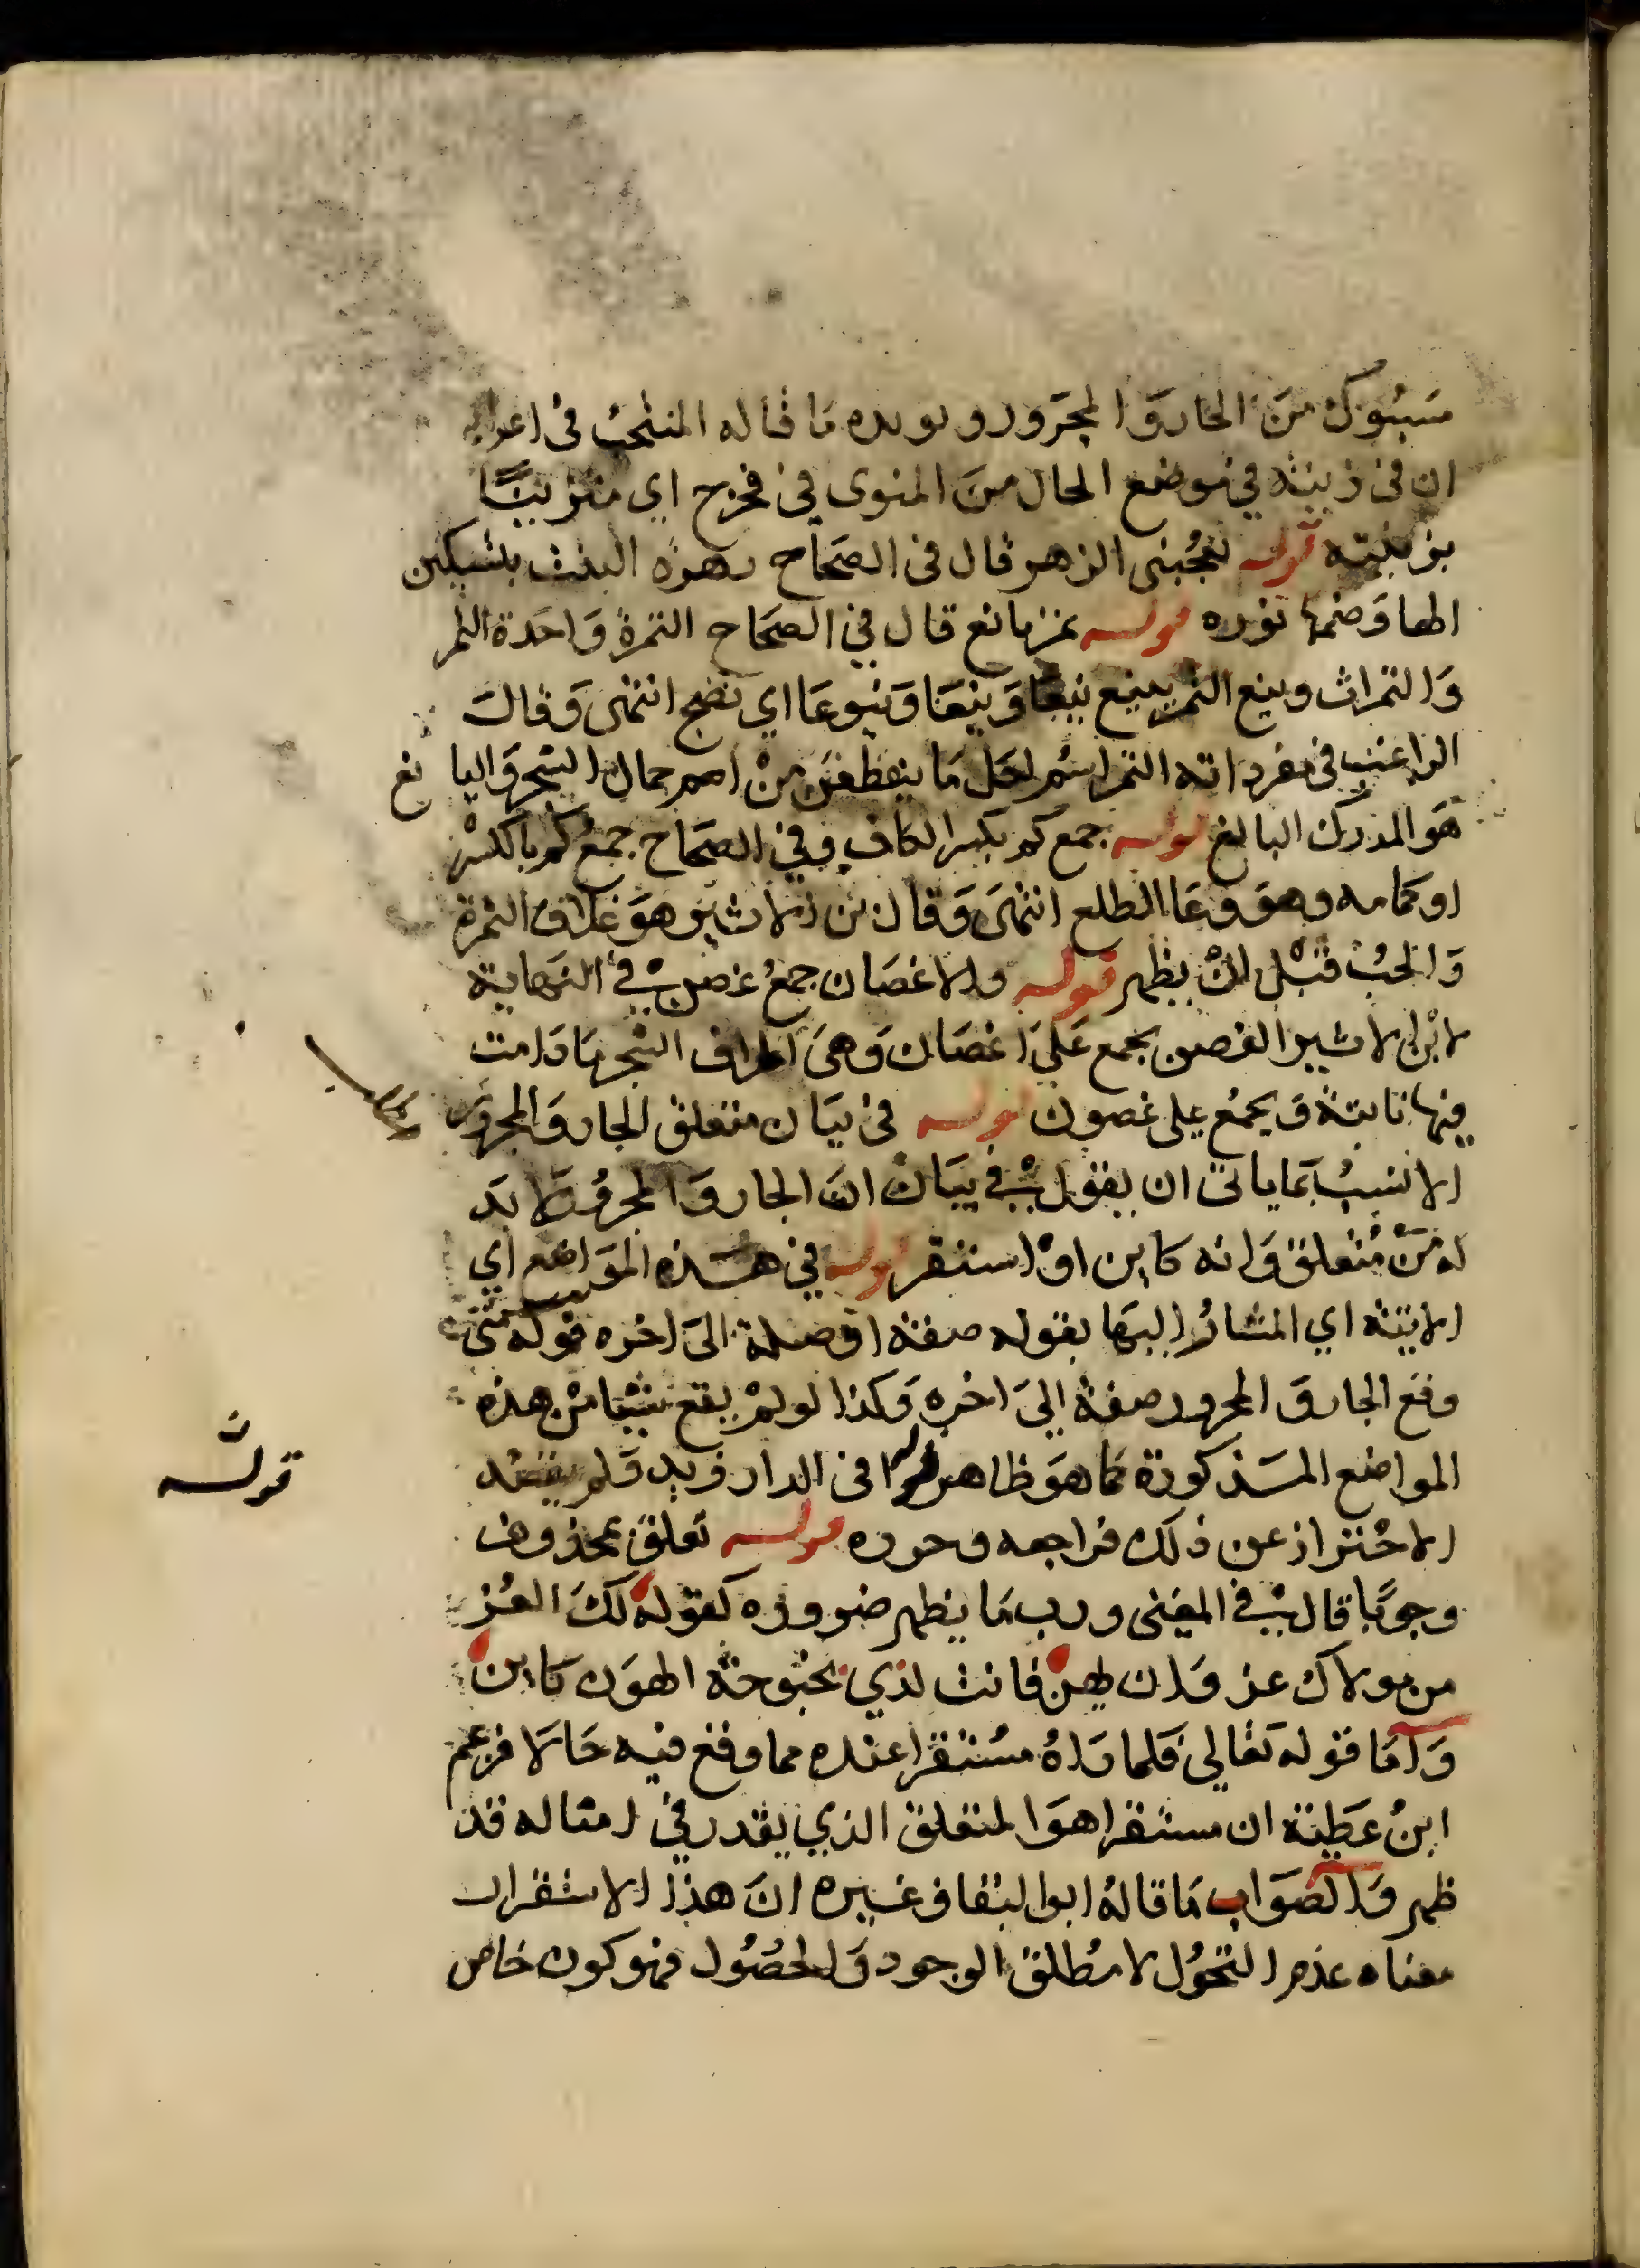 مسبوك من الجار والمجرور ويويده ما قاله المنتجب في اعرابه
ان في زينته في موضع الحال من المنوى في فخرج اي متزينا
بزينته قوله يعجبنى الزهر قال في الصحاح زهرة النبت بتسكين
الها وضمها نوره قوله ثمر يانع قال في الصحاح الثمرة واحدة الثمر
والثمرات وينع الثمر يينع ينعا وينعا وينوعا اي نضج انتهى وقال
الراغب في مفرداته الثمر اسم لكل ما يتطعم من احمال الشجر واليانع
هو المدرك البالغ قوله جمع كم بكسر الكاف وفي الصحاح جمع كم بالكسر
او كمامه وهو وعا الطلع انتهى وقال بن الاثير هو غلاف الثمرة
والحب قبل ان يظهر قوله والاغصان جمع غصن في النهاية
لابن الاثير الغصن يجمع على اغصان وهى اطراف الشجر ما دامت
فيها نابتة ويجمع على غصون قوله في بيان متعلق الجار والمجرور
الانسب بما ياتى ان يقول في بيان ان الجار والمجرور لا بد
له من متعلق وانه كاين او استقر قوله في هذه المواضع اي
الاتية اي المشار اليها بقوله صفة او صلة الى اخره قوله متى
وقع الجار والمجرور صفة الى اخره وكذا لو لم يقع شيا من هذه
المواضع المذكورة كما هو ظاهر في الدار زيد ولم يقصد
الاحتراز عن ذلك فراجعه وحرره قوله تعلق بمحذوف
وجوبا قال في المغنى وربما يظهر ضرورة كقوله لك العز
من مولاك عز وان يهن فانت لدي بحبوحة الهون كاين
واما قوله تعالى فلما راه مستقرا عنده مما وقع فيه حالا فزعم
ابن عطية ان مستقرا هو المتعلق الذي يقدر في امثاله قد
ظهر والصواب ما قاله ابوا البقا وغيره ان هذا الاستقرار
معناه عدم التحول لا مطلق الوجود والحصول فهو كون خاص
قوله